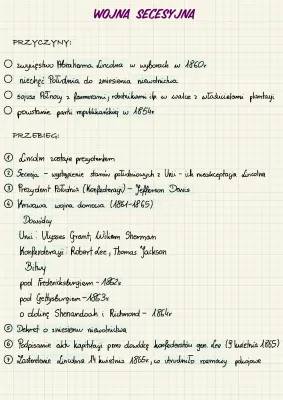 WOJNA SECESYJNA
PRZYCZYNY:
zwycięstwo Abrahama Lincolna w wyborach w 1860r
niechęć Południa do zniesienia niewolnictwa
sojusz Północy z farmerami, robotnikami itp w walce z właścicielami plantacji
powstanie partii republikańskiej w 1854r
PRZEBIEG:
1 Lincoln zostaje prezydentem
2 Secesja - wystąpienie stanów południowych z Unii - nieakceptacja Lincolna
3 Prezydent Południa (Konfederacji) - Jefferson Davis
4 Krwawa wojna domowa (1861-1865)
Dowódcy
Unii: Ulysses Grant, Wiliam Sherman
Konfederacji: Robert Lee, Thomas Jackson
Bitwy
pod Fredericksburgiem - 1862r
pod Gettysburgiem - 1863r
o dolinę Shenandoah i Richmond - 1864r
5 Dekret o zniesieniu niewolnictwa
6 Podpisanie aktu kapitulacji przez dowódcę konfederatów gen. Lee (9 kwietnia 1865)
7 Zastrzelenie Lincolna 14 kwietnia 1865r, co utrudniło rozmowy pokojowe